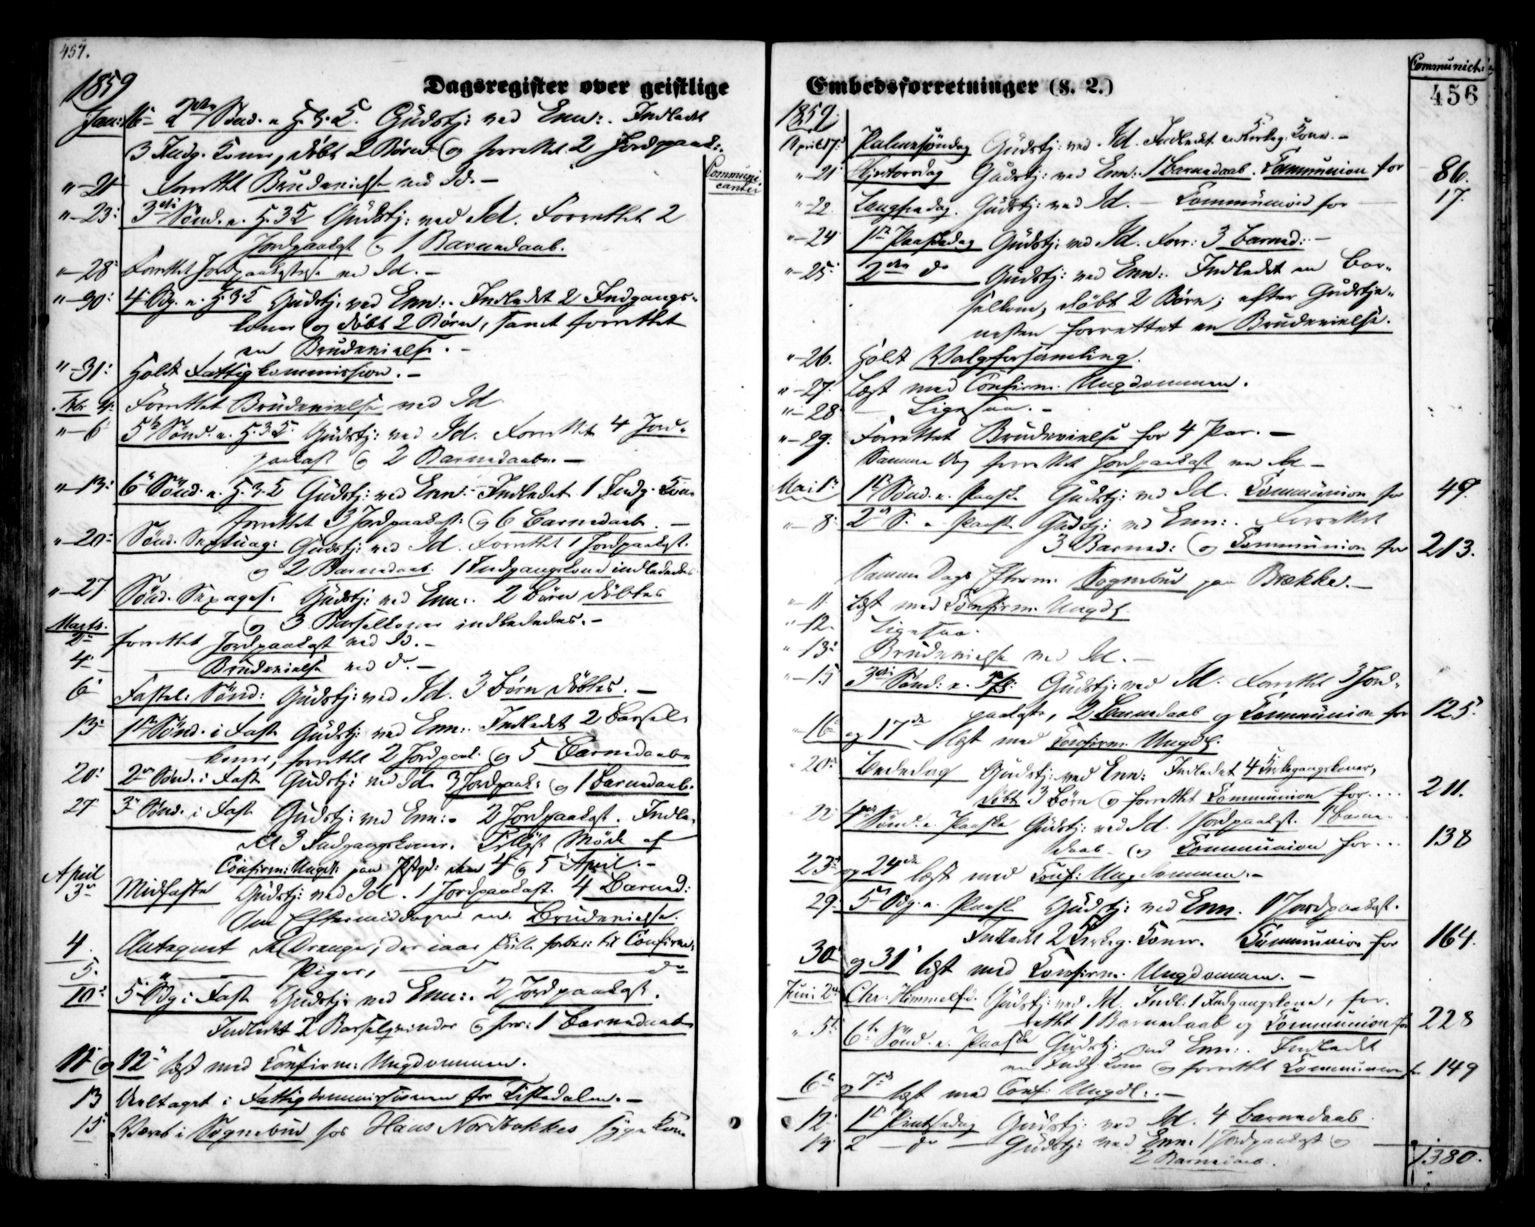 457.
1859
Dagsregister over geistlige
Jan: 16 2den Sønd. e. H. 3 K. Gudstj: ved Enn:. Indledt
3 Kirkg. Koner, døbt 2 Børn og forrettet 2 Jordpaak:
Communicanter
"-21 Forrettet Brudevielse ved Id. -
"-23: 3die Sønd. e. H. 3 K Gudstj: ved Id. Forrettet 2
Jordpaakst og 1 Barnedaab.
"-28 Forrettet Jordpaakastelse ved Id. -
"-30: 4 Sdg. e. H. 3 K Gudstj: ved Enn:. Indledt 2 Indgangs-
koner og døbt 2 Børn, samt forrettet
en Brudevielse. -
"-31: Holdt Fattigkommission. -
Feb. 4: Forrettet Brudevielse ved Id
"-6 5te Sønd. e. H. 3 K. Gudstj: ved Id. Forrettet 4 Jord-
paakast og 2 Barnedaabe. -
"-13: 6te Sønd. e. H. 3 K Gudstj: ved Enn: Indledet 1 Kirkg. Kone
forrettet 3 Jordpaakast: og 6 Barnedaab. -
"-20: Sønd. Septuag: Gudstj: ved Id. Forrettet 1 Jordpaakast.
og 2 Barnedaab 1 Indgangskone indlededes
"-27 Sønd. Sexages: Gudstj: ved Enn:. 2 Børn døbtes
og 3 Barselkoner indlededes. -
Marts.
2den forrettet Jordpaakast ved Id. -
4 Brudevielse ved do. -
6 Fastel: Sønd: Gudstj: ved Id. 3 Børn døbtes. -
13: 1ste Sønd: i Faste Gudstj: ved Enn: Indledt 2 Barsel-
koner, forrettet 2 Jordpaak: og 5 Barnedaabe
20: 2den Sønd: i Faste Gudstj: ved Id. 3 Jordpaak: og 1 Barnedaab.
27 3die Sønd: i Faste Gudstj: ved Enn: 2 Jordpaakast. Indle-
det 3 Indgangskoner. Tillyst Møde af
Confirm: Ungd: paa den 4 og 5 April. -
April
3 Midfaste Gudstj: ved Id. 1 Jordpaakast. 4 Barned:
Om Eftermiddagen en Brudevielse.
4. Antaget de Drenge, der iaar til Confirm:
5. Piger, do
10: 5 Sdg: i Faste Gudstj: ved Enn:. 2 Jordpaakast.
Indledt 2 Barselqvinder og forr: 1 Barnedaab
11 og 12 læst med Confirm: Ungdommen.
13 Deeltaget i Fattigkommissionen for Tistedalen. -
15 Været i Sognebud for Hans Nordbekkes syge Kone
Embedsforretninger (S. 2.)
Communict:
456
1859:
April 17: Palmesøndag Gudstj: ved Id. Indledt en Kirkeg. Kone. -
"-21: Skjertorsdag Gudstj: ved Enn: 1 Barnedaab. Communion for 86.
"-22. Langfredag. Gudstj: ved Id. - Communion for - 17.
"-24 1ste Paaskedag Gudstj: ved Id. Forr: 3 Barned: -
"-25: 2den do Gudstj: ved Enn:. Indledet en Bar-
selkone, døbt 2 Børn; efter Gudstje-
nesten forrettet en Brudevielse.
"-26. Holdt Valgforsamling.
"-27. Læst med Confirm: Ungdommen.
"-28 - Ligesaa. -
"-29. Forrettet Brudevielse for 4 Par. -
Samme Dag forrettet Jordpaakast ved Id -
Mai 1: 1ste Sønd: e. Paaske Gudstj: ved Id. Communion for 49.
"-8: 2den S. e. Paaske. Gudstj: ved Enn:. Forrettet
3 Barned: og Communion for 213.
Samme Dags Efterm: Sognebud paa Brække. -
"11 Læst med Confirm: Ungd:
"12. Ligesaa.
"13: Brudevielse ved Id. -
"-15 3die Sønd: e. Gudstj: ved Id. Forrettet 3 Jord-
paakaste, 2 Barnedaab og Communion for 125.
16 og 17de læst med Confirm: Ungd:
20de Bededag Gudstj: ved Enn: Indledet 4 Kirkegangskoner,
døbt 3 Børn og forrettet Communion for... 211.
22 Sønd: e. Paaske Gudstj: ved Id. Jordpaakast. 1 Barne-
daab - og Communion for... 138
23de og 24de læst med Conf: Ungdommen. -
29. 5 Sdg. e. Paaske Gudstj: ved Enn. 1 Jordpaakast.
Indledt 2 Kirkeg. Koner. Communion for 164.
30 og 31 læst med Confirm: Ungdommen. -
Juni 2den Chr: Himmelf: Gudstj: ved Id. Indl: 1 Indgangskone, for-
rettet 1 Barnedaab og Communion for 228
"5te 6te Sønd: e. Paaske Gudstj: ved Enn:. Indledet
en Kone og forrettet Communion for 149
6 og 7de læst med Conf: Ungd:. -
12. 1ste Pintsedag Gudstj: ved Id. 4 Barnedaab.
13 2 - do - Gudstj: ved Enn: 1 Jordpaakast og
2 Barnedaab.
1380.